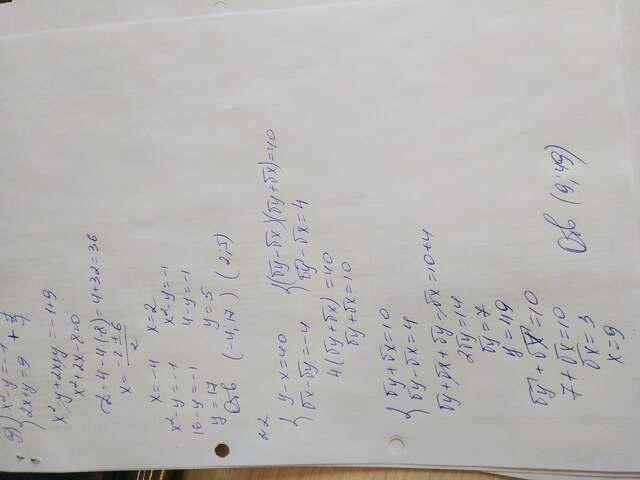 g) { x²-y=-1
{ 2x+y=9 +
x²-y+2x+y=-1+9
x²+2x-8=0
D=4-4·(-8)=4+32=36
x=-2±6/2
x=-4 x=2
x²-y=-1 x²-y=-1
16-y=-1 4-y=-1
y=17 y=5
Отв (-4,17) (2;5)
№2
{ y-x=40 { (√y-√x)(√y+√x)=40
{ √x-√y=-4 √y-√x=4
4(√y+√x)=40
√y+√x=10
{ √y+√x=10
{ √y-√x=4
√y+√x+√y-√x=10+4
2√y=14
√y=7
y=49
√y+√x=10
7+√x=10
√x=3
x=9
Отв (9;49)